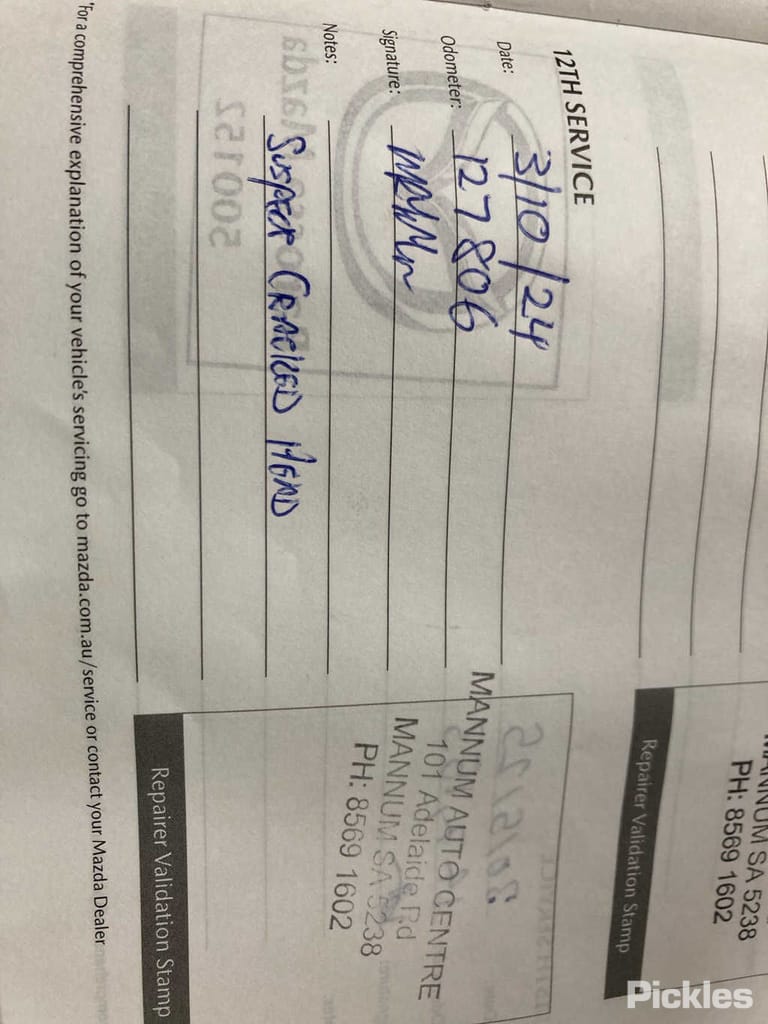 MANNUM SA 5238
PH: 8569 1602
Repairer Validation Stamp
12TH SERVICE
Date: 3/10/24
Odometer: 127806
Signature:
Notes:
SUSPECT CRACKED HEAD
MANNUM AUTO CENTRE
101 Adelaide Rd
MANNUM SA 5238
PH: 8569 1602
Repairer Validation Stamp
*For a comprehensive explanation of your vehicle's servicing go to mazda.com.au/service or contact your Mazda Dealer
Pickles